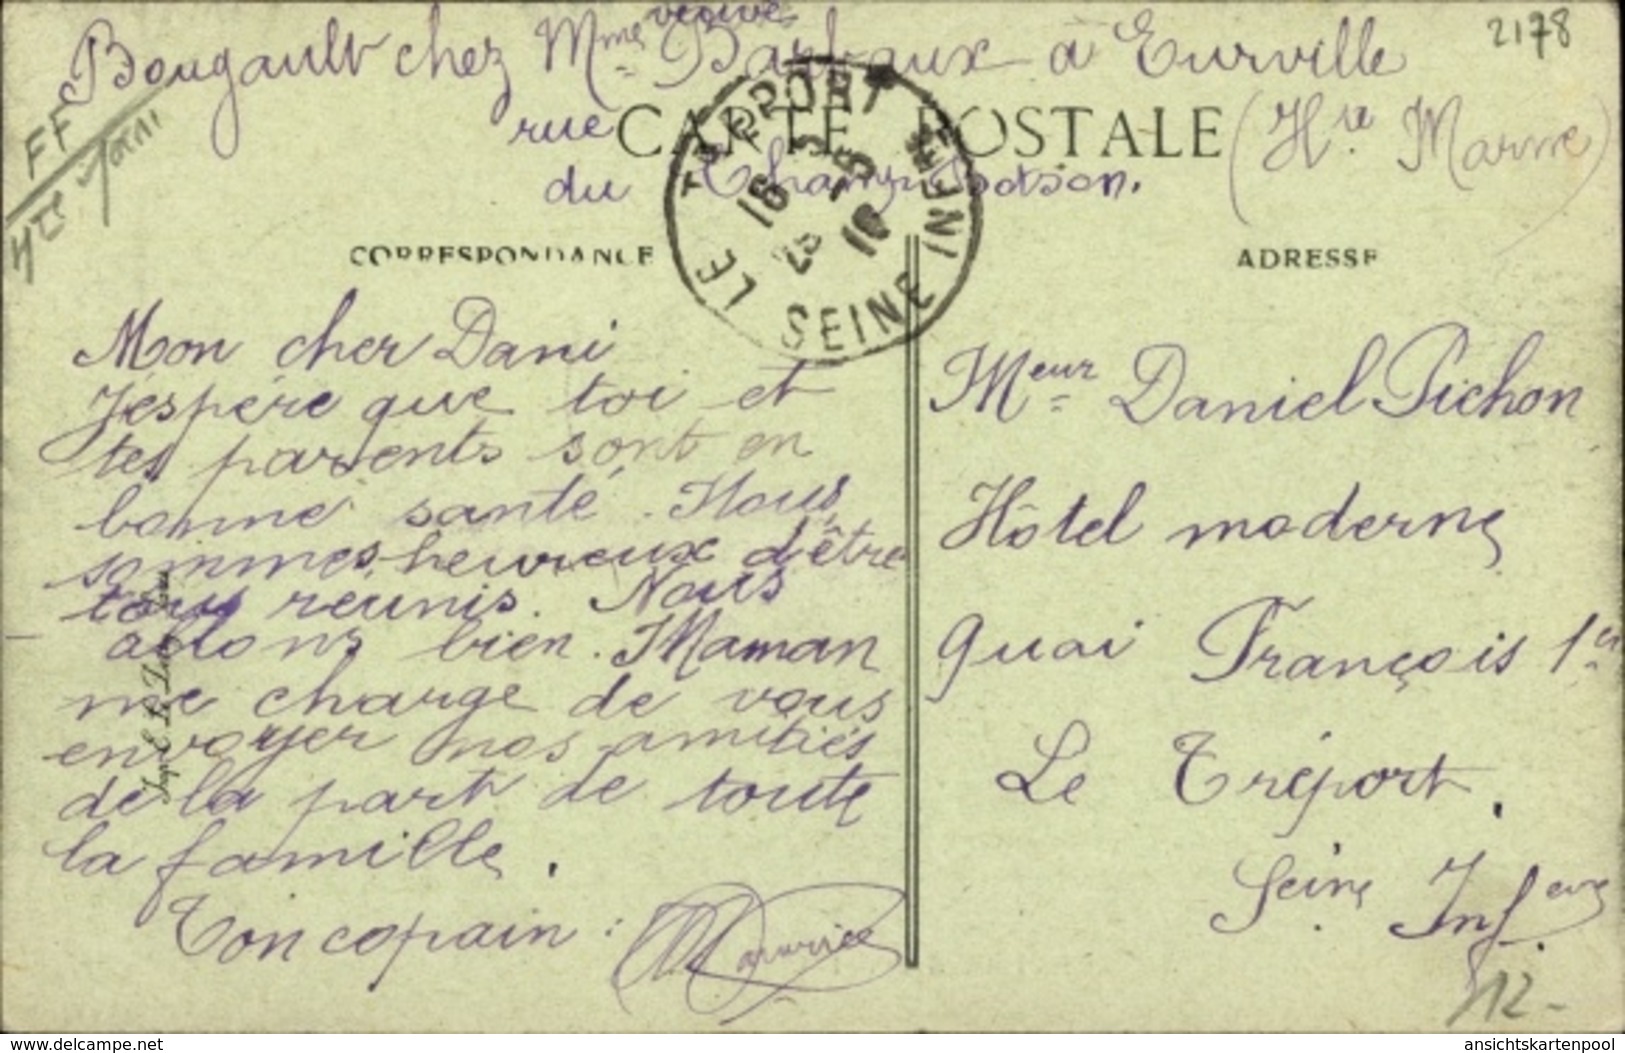 veuve
Bougault chez Mme Barbaux à Eurville
2178
rue
CARTE POSTALE
(Hte Marne)
du Champ
FF
Hte
LE TREPORT
18
10
SEINE INFRE
CORRESPONDANCE
ADRESSE
Mon cher Dani
J'éspére que toi et
tes parents sont en
bonne santé. Nous
sommes heureux d'être
tous reunis. Nous
allons bien. Maman
me charge de vous
envoyer nos amitiés
de la part de toute
la famille.
Ton copain : Maurice
Meur Daniel Pichon
Hôtel moderne
Quai François 1er
Le Tréport.
Seine Infeure
12-
delcampe.net
ansichtskartenpool